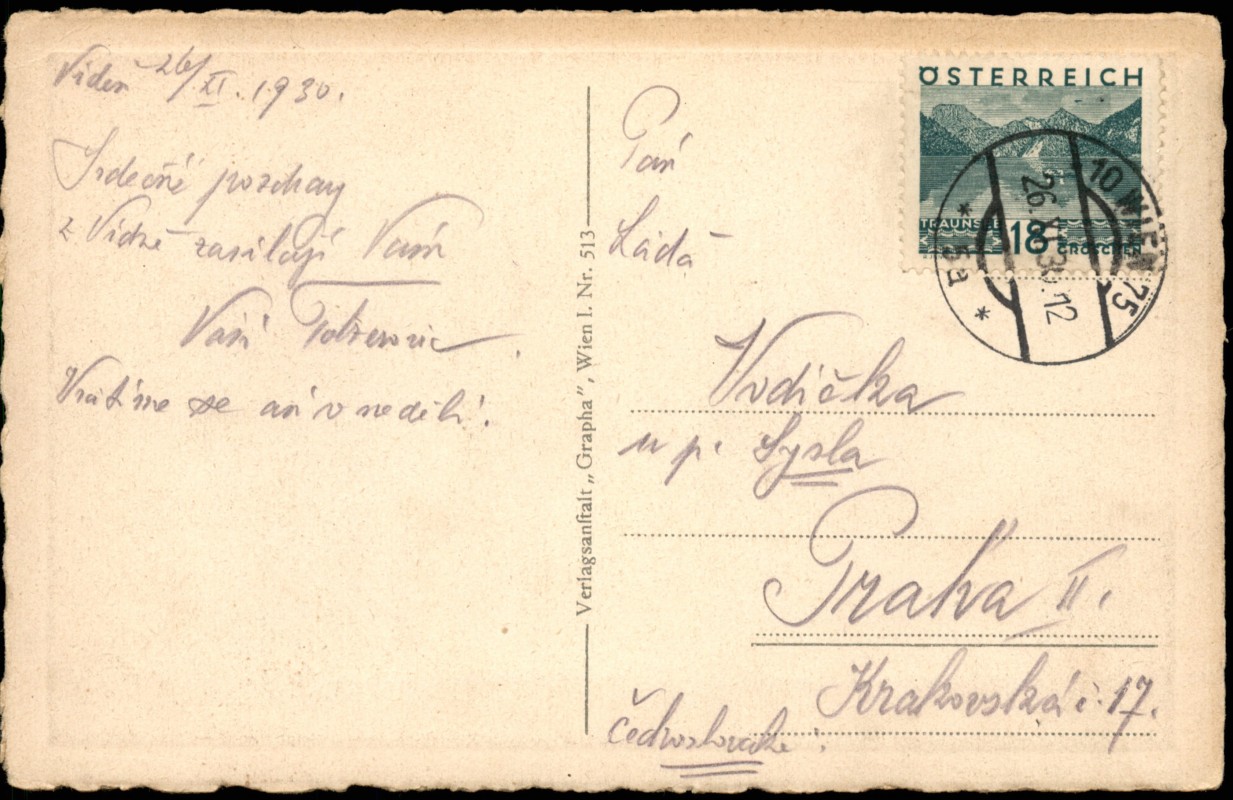 Vídeň 26/XI. 1930.
Srdečné pozdravy
z Vídně zasílají Vám
Vaši
Vrátíme se asi v neděli.
Verlagsanstalt „Grapha”, Wien I. Nr. 513
ÖSTERREICH
TRAUNSEE
18 GROSCHEN
10 WIEN 75
26.XI.30.12
* 5a *
Pán
Láďa
Vodička
u p. Sysla
Praha II.
Krakovská č. 17.
Československo.